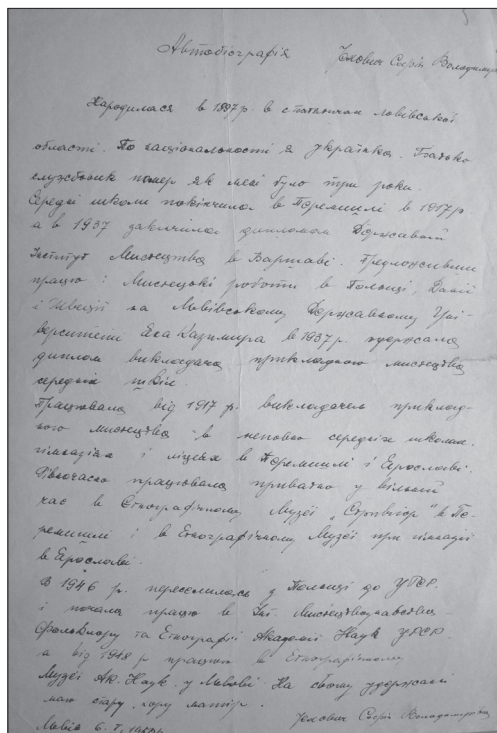 Автобіографія
Чехович Софія Володимирівна
Народилася в 1897 р. в с. Львівської
області. По національности я українка. Батько
службовик помер як мені було три роки.
Середні школи покінчила в Перемишлі в 1917 р
а в 1937 закінчила дипломом Державний
Інститут Мистецтва в Варшаві. Предложивши
працю і Мистецькі роботи в Польщі, Данії
і Швеції на Львівському Державному Уні
верситеті Яна Казимира в 1937 р. одержала
диплом викладача прикладного мистецтва
середніх шкіл.
Працювала від 1917 р. викладачем приклад-
ного мистецтва в неповно середніх школах,
гімназіях і ліцеях в Перемишлі і Ярославі.
Рівночасно працювала приватно у вільний
час в Етнографічному Музеї „Стривігор" в Пе-
ремишлі і в Етнографічному Музеї при гімназії
в Ярославі.
В 1946 р. переселилась з Польщі до УРСР.
і почала працю в Інт. Мистецтвознавства
Фольклору та Етнографії Академії Наук УРСР.
а від 1948 р працюю в Етнографічному
Музеї Ак. Наук у Львові. На своєму удержані
маю стару, хору матір.
Львів 6. І.
Чехович Софія Володимирівна